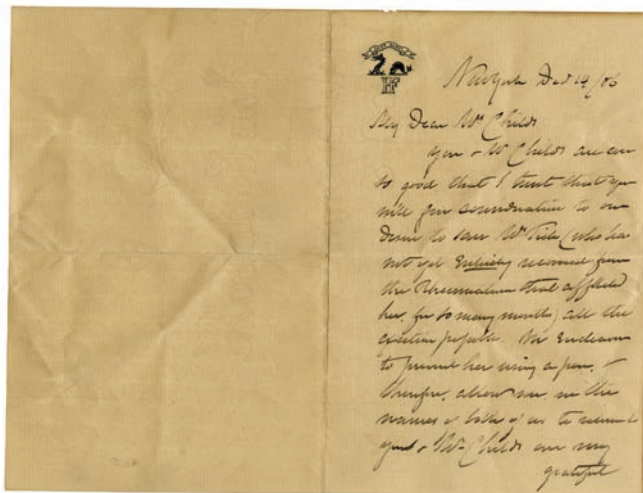 New York Dec 14/86
My Dear Mrs Childs
You & Mr Childs are ever
so good that I trust that you
will give consideration to our
desire to save Mrs (who has
not yet Entirely recovered from
the Rheumatism that afflicted
her, for so many months) all the
exertion possible. We Endeavor
to prevent her using a pen, &
therefore, allow me, in the
names of both of us to
& Mr Childs our very
grateful